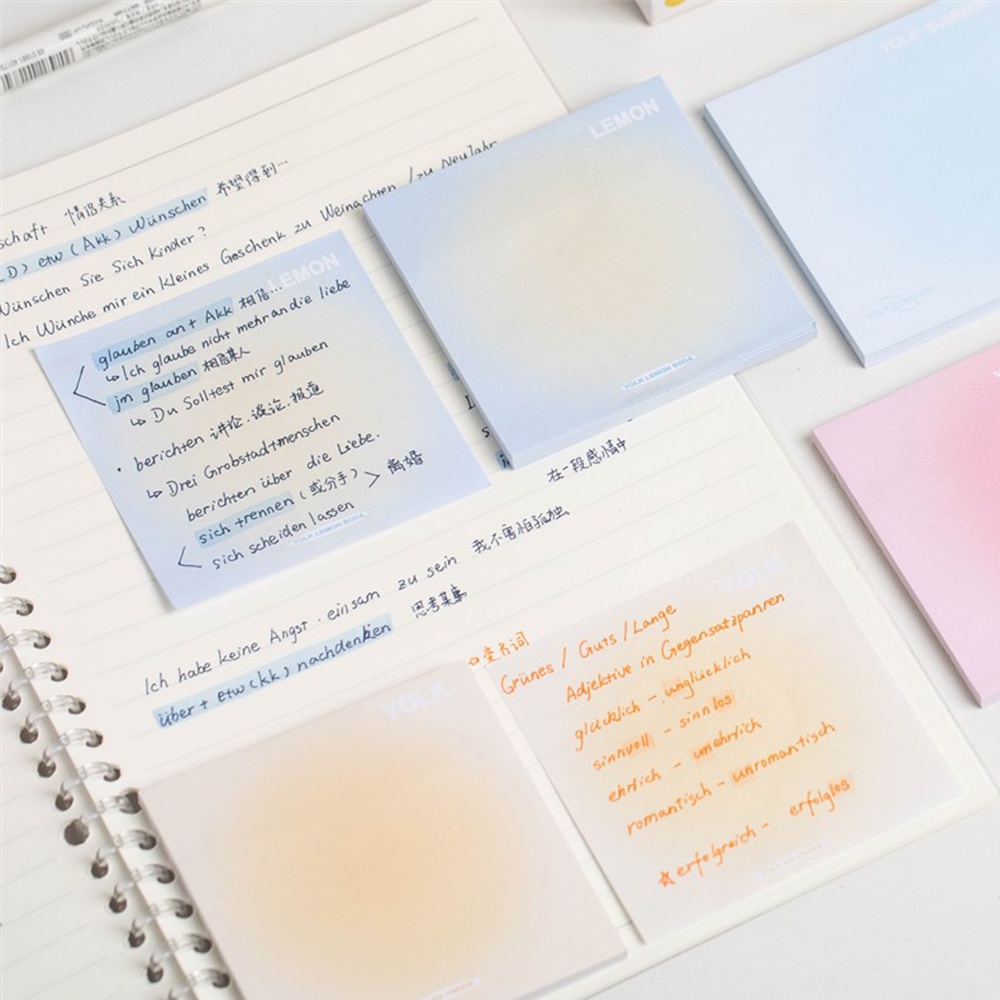 schaft 情侣关系
D) etw (Akk) Wünschen 希望得到…
Wünschen Sie Sich Kinder?
Ich Wünche mir ein kleines Geschenk zu Weinachten /zu Neujahr
LEMON
glauben an + Akk 相信…
↳ Ich glaube nicht mehr an die liebe
jm glauben 相信某人
↳ Du Solltest mir glauben
· berichten 讲论.谈论.报道
↳ Drei Grobstadtmenschen
berichten über die Liebe.
sich trennen (或分手) > 离婚
sich scheiden lassen
YOLK LEMON SODA
LEMON
YOLK LEMON SODA
YOLK SUMMER
在一段感情中
Ich habe keine Angst . einsam zu sein 我不害怕孤独
über + etw (kk) nachdenken 思考某事
YOLK
YOLK
变名词
Grünes / Guts / Lange
Adjektive in Gegensatzpanren
glücklich - unglücklich
sinnvoll - sinnlos
ehrlich - unehrlich
romantisch - unromantisch
☆erfolgreich - erfolglos